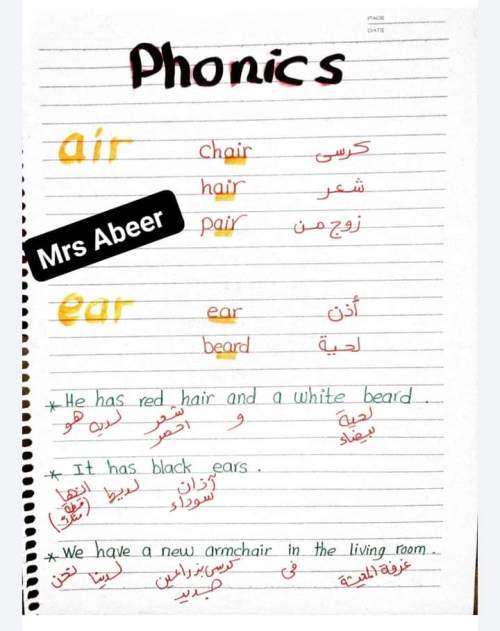 PAGE
DATE
Phonics
air
chair كرسى
hair شعر
pair زوج من
Mrs Abeer
ear
ear أذن
beard لحية
* He has red hair and a white beard.
هو لديه شعر احمر و لحية بيضاء
* It has black ears.
انها لديها آذان سوداء
* We have a new armchair in the living room.
نحن لدينا كرسى بذراعين جديد فى غرفة المعيشة